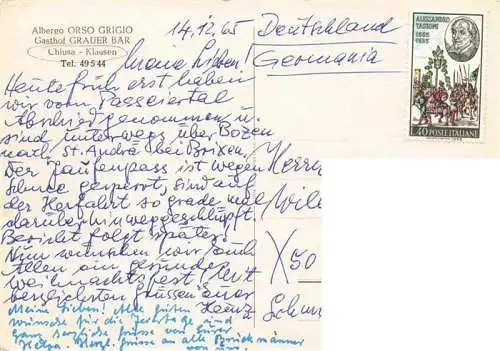 Albergo ORSO GRIGIO
Gasthof GRAUER BÄR
Chiusa - Klausen
Tel. 49544
14.12.65
Deutschland
Germania
ALESSANDRO
TASSONI
1565
1635
40 POSTE ITALIANE
Meine Lieben!
Heute früh erst haben
wir vom Passeiertal
Abschied genommen u.
sind unterwegs über Bozen
nach St. Andrä bei Brixen.
Der Jaufenpass ist wegen
Schnee gesperrt, sind auf
der Herfahrt so grade mal
darüber hinweggeschlüpft.
Bericht folgt später.
Nun wünschen wir Euch
Allen ein gesundes
Weihnachtsfest! Mit
herzlichsten Grüssen Euer
Heinz
Meine Lieben! Alle guten
Wünsche für die Feiertage und
ganz herzliche Grüsse von Eurer
Helga. Herzl. Grüsse an alle Brückmänner
von uns.
Herrn
X50